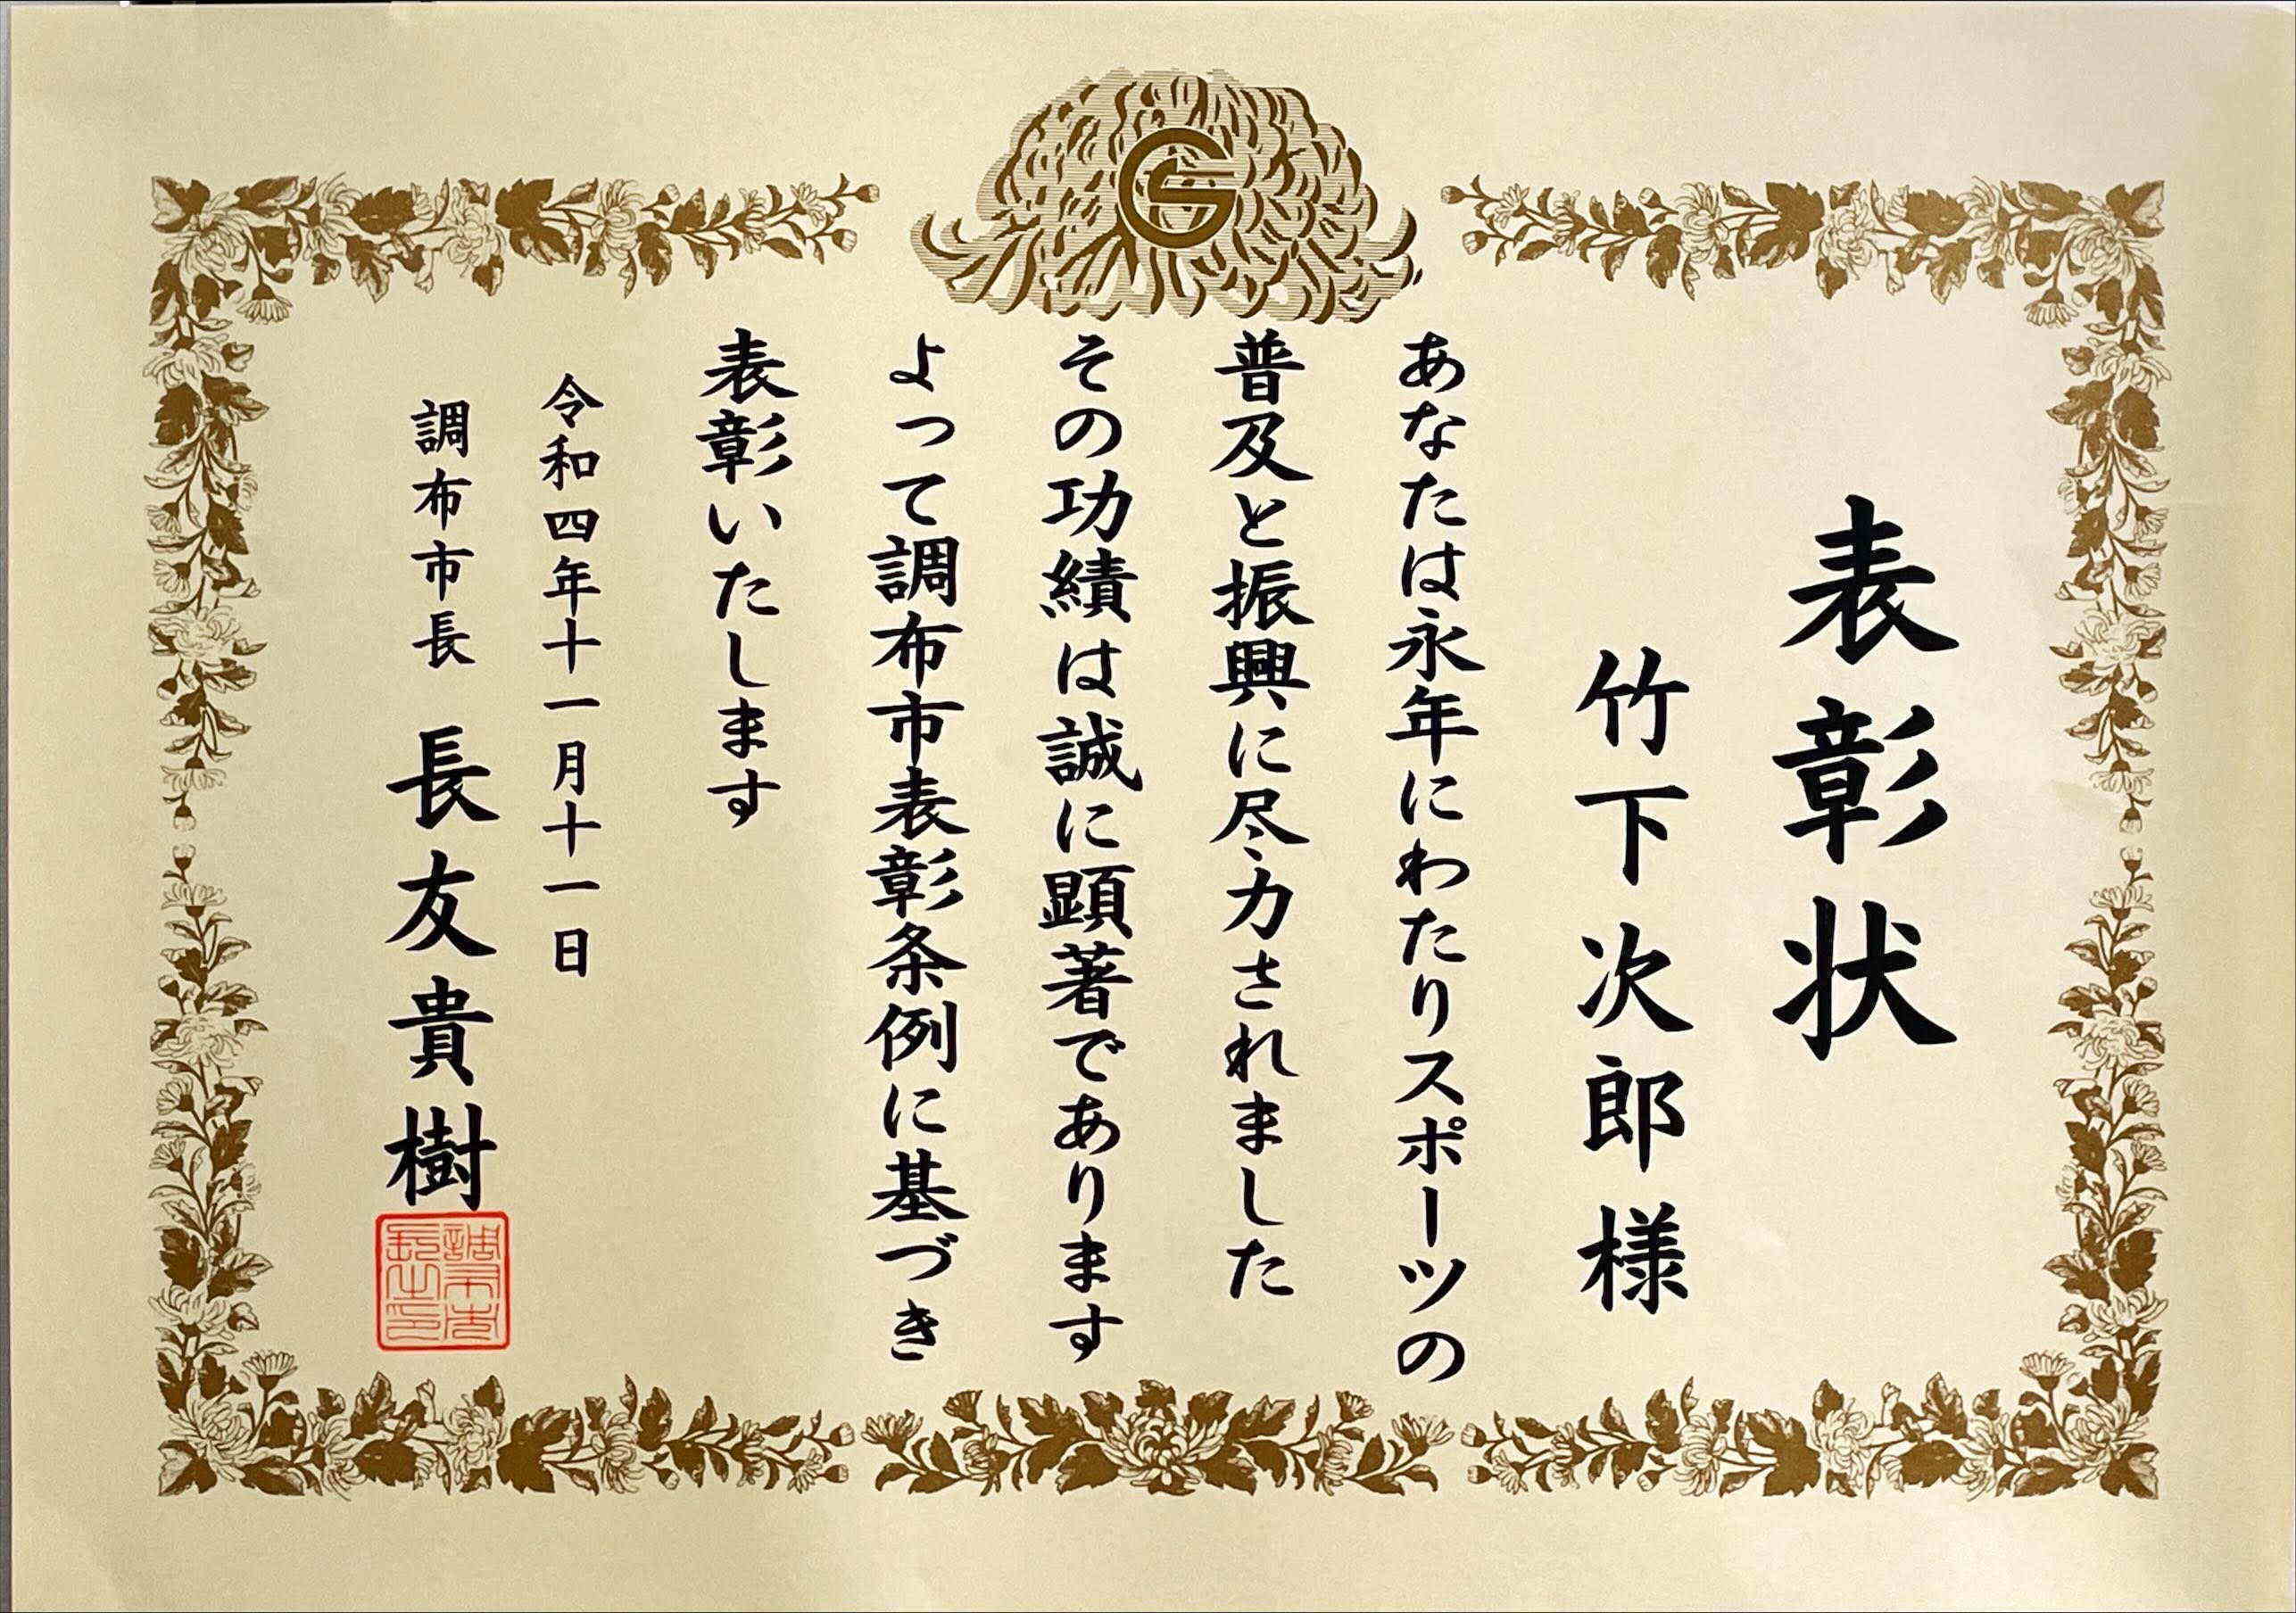 表彰状
竹下次郎様
あなたは永年にわたりスポーツの
普及と振興に尽力されました
その功績は誠に顕著であります
よって調布市表彰条例に基づき
表彰いたします
令和四年十一月十一日
調布市長 長友貴樹
調布市長之印